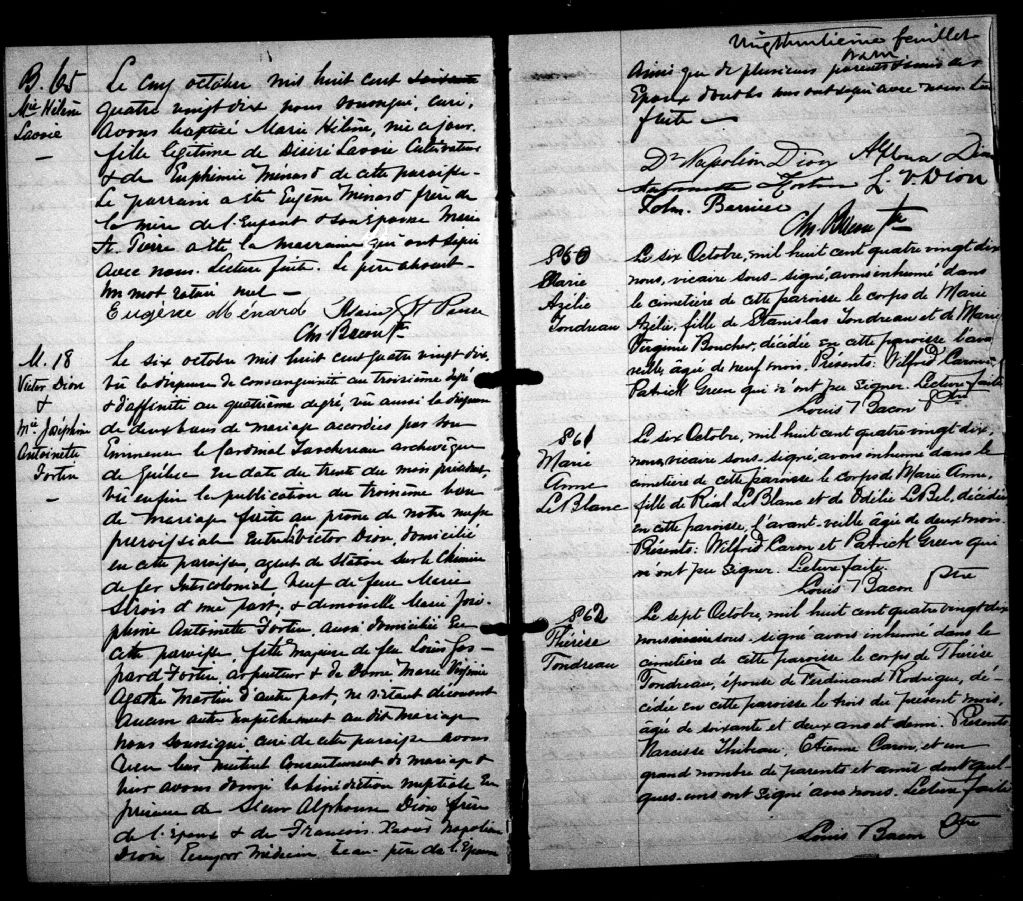 B. 65
Mie Hélène
Lavoie
Le cinq octobre mil huit cent soixante
quatre vingt dix nous soussigné, curé,
avons baptisé Marie Hélène, née ce jour,
fille légitime de Désiré Lavoie Cultivateur
& de Euphémie Ménard de cette paroisse.
Le parrain a été Eugène Ménard frère de
la mère de l'Enfant & son Epouse Marie
St. Pierre a été la marraine qui ont signé
avec nous. Lecture faite. Le père absent.
Un mot rature nul —
Eugène Ménard Marie St Pierre
Chs Bacon Ptre
M. 18
Victor Dion
&
Mie Joséphine
Antoinette
Fortin
Le six octobre mil huit cent quatre vingt dix,
vu la dispense de consanguinité au troisième degré
& d'affinité au quatrième degré, vu aussi la dispense
de deux bans de mariage accordées par Son
Eminence le Cardinal Taschereau archevêque
de Québec en date du trente du mois précédent,
vu enfin la publication du troisième ban
de mariage faite au prône de notre messe
paroissiale Entre Victor Dion, domicilié
en cette paroisse, agent de Station sur le Chemin
de fer Intercolonial, Veuf de feue Marie
Sirois d'une part, & demoiselle Marie José-
phine Antoinette Fortin, aussi domiciliée En
cette paroisse, fille majeure de feu Louis Gas-
pard Fortin, arpenteur & de Dame Marie Virginie
Agathe Martin d'autre part, ne s'étant découvert
aucun autre empêchement au dit mariage
nous soussigné, curé de cette paroisse avons
reçu leur mutuel consentement de mariage &
leur avons donné la bénédiction nuptiale En
présence de Sieur Alphonse Dion frère
de l'Epoux & de François Napoléon
Dion Ecuyer Médecin beau-père de l'Epouse
Vingthuitième feuillet
Bacon
Ainsi que de plusieurs parents & amis des
Epoux dont les uns ont signé avec nous. Lecture
faite —
Dr Napoléon Dion Alphonse Dion
Antoinette Fortin L. V. Dion
Bernier
Chs Bacon Ptre
S60
Marie
Azélie
Tondreau
Le six Octobre, mil huit cent quatre vingt dix
nous, vicaire sous-signé, avons inhumé dans
le cimetière de cette paroisse le corps de Marie
Azélie, fille de Stanislas Tondreau et de Marie
Virginie Boucher, décédée en cette paroisse l'avant
veille, âgée de neuf mois. Présents: Wilfrid Caron,
Patrick Green qui n'ont pu signer. Lecture faite
Louis T Bacon Ptre
S61
Marie
Anne
LeBlanc
Le six Octobre, mil huit cent quatre vingt dix,
nous, vicaire sous-signé, avons inhumé dans le
cimetière de cette paroisse le corps de Marie Anne,
fille de Réal LeBlanc et de Odélie LeBel, décédée
en cette paroisse, l'avant-veille âgée de deux mois.
Présents: Wilfrid Caron et Patrick Green qui
n'ont pu signer. Lecture faite.
Louis T Bacon Ptre
S62
Thérèse
Tondreau
Le sept Octobre, mil huit cent quatre vingt dix
nous vicaire sous-signé avons inhumé dans le
cimetière de cette paroisse le corps de Thérèse
Tondreau, épouse de Ferdinand Rodrigue, dé-
cédée en cette paroisse le trois du présent mois,
âgée de soixante et deux ans et demi. Présents
Narcisse Thibeau, Etienne Caron, et un
grand nombre de parents et amis dont quel-
ques-uns ont signé avec nous. Lecture faite
Louis Bacon Ptre